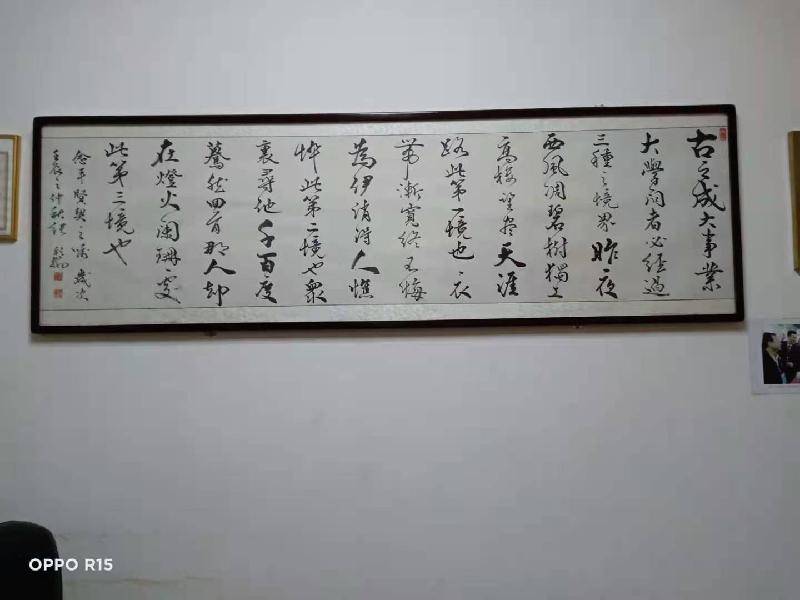 古之成大事業
大學問者必經過
三種之境界昨夜
西風凋碧樹獨上
高樓望盡天涯
路此第一境也衣
帶漸寬終不悔
為伊消得人憔
悴此第二境也眾
裏尋他千百度
驀然回首那人卻
在燈火闌珊處
此第三境也
念平賢契之囑歲次
壬辰之仲秋
OPPO R15